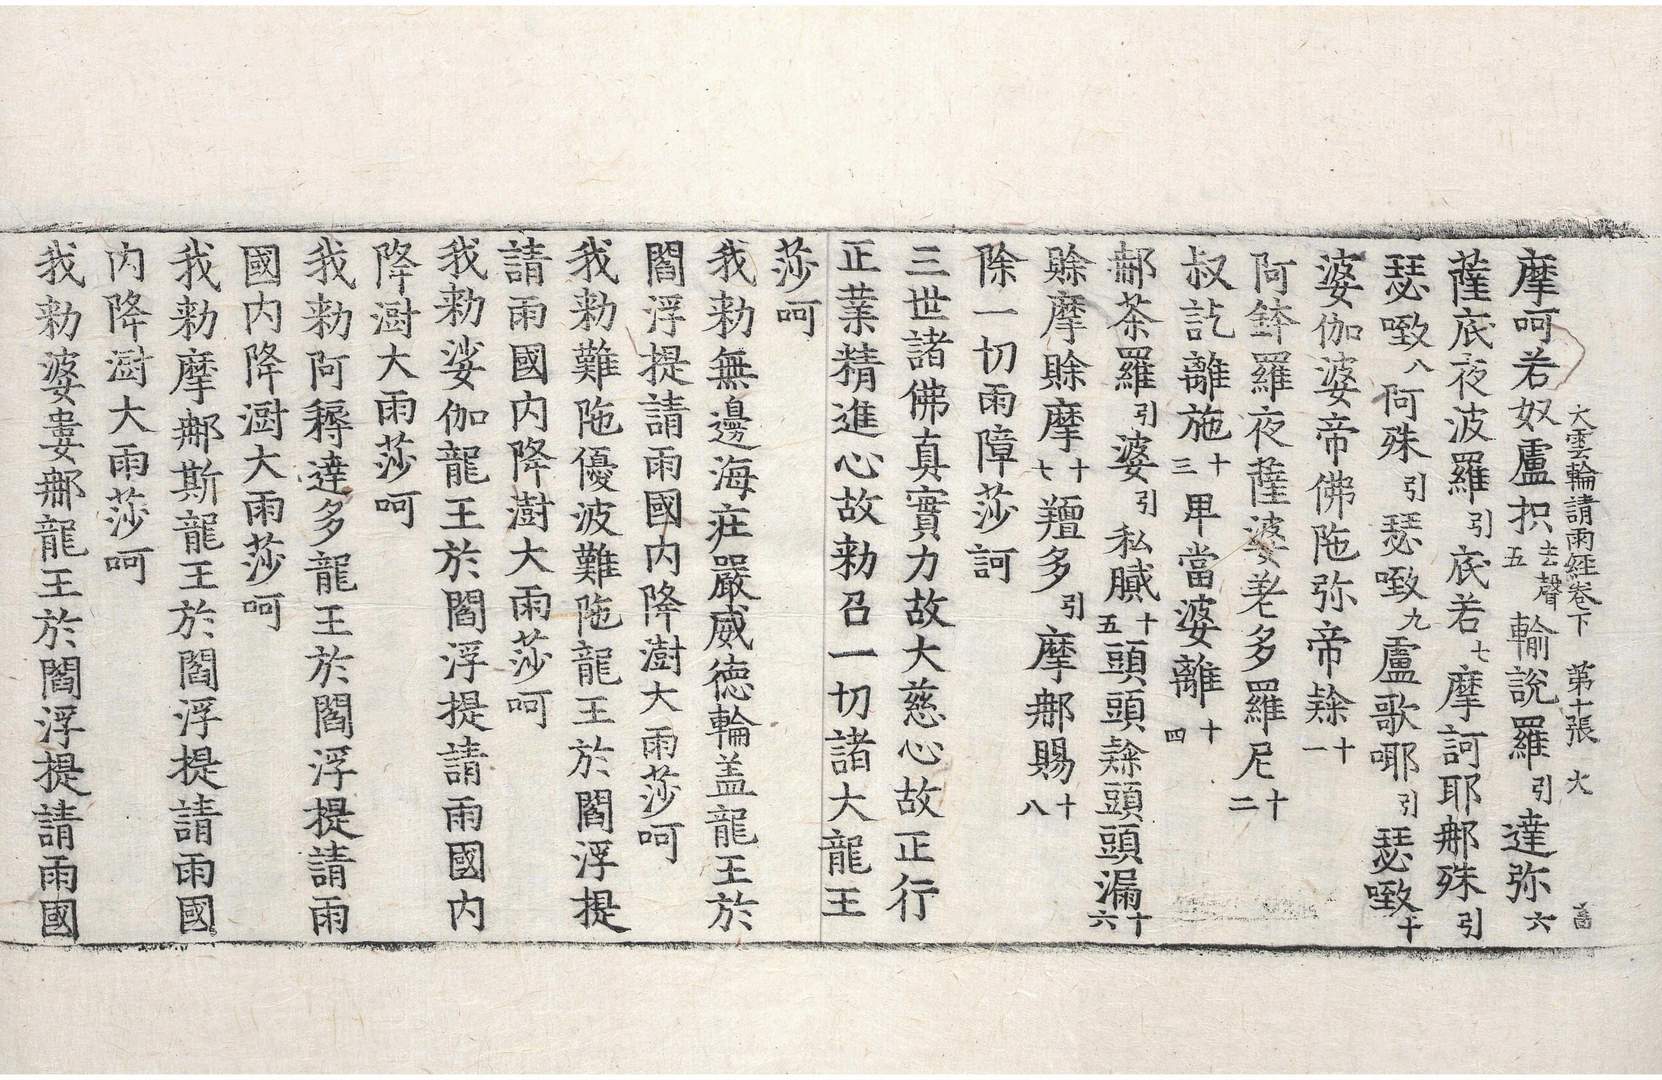 大雲輪請雨經卷下 第十張 大
摩呵若奴盧抧去聲五輸說羅引達弥六
薩底夜波羅引底若七摩訶耶郍殊引
瑟㘈八阿殊引瑟㘈九盧歌唧引瑟㘈十
婆伽婆帝佛陁弥帝𨽻十一
阿鉢羅夜薩婆老多羅尼十二
叔訖離施十三卑當婆離十四
郍荼羅引婆引私膩十五頭頭𨽻頭頭漏十六
賖摩賖摩十七羶多引摩郍賜十八
除一切雨障莎訶
三世諸佛真實力故大慈心故正行
正業精進心故勑召一切諸大龍王
莎呵
我勑無邊海庄嚴威徳輪盖龍王於
閻浮提請雨國内降澍大雨莎呵
我勑難陁優波難陁龍王於閻浮提
請雨國内降澍大雨莎呵
我勑娑伽龍王於閻浮提請雨國内
降澍大雨莎呵
我勑阿耨達多龍王於閻浮提請雨
國内降澍大雨莎呵
我勑摩郍斯龍王於閻浮提請雨國
内降澍大雨莎呵
我勑婆婁郍龍王於閻浮提請雨國